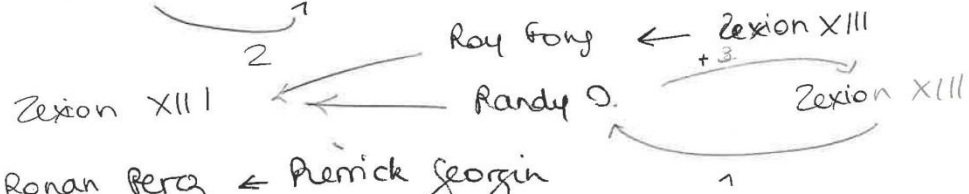 1
2
Roy Fong ← Zexion XIII
+ 3
Zexion XIII
Randy O.
Zexion XIII
Ronan ← Pierrick Georgin
1